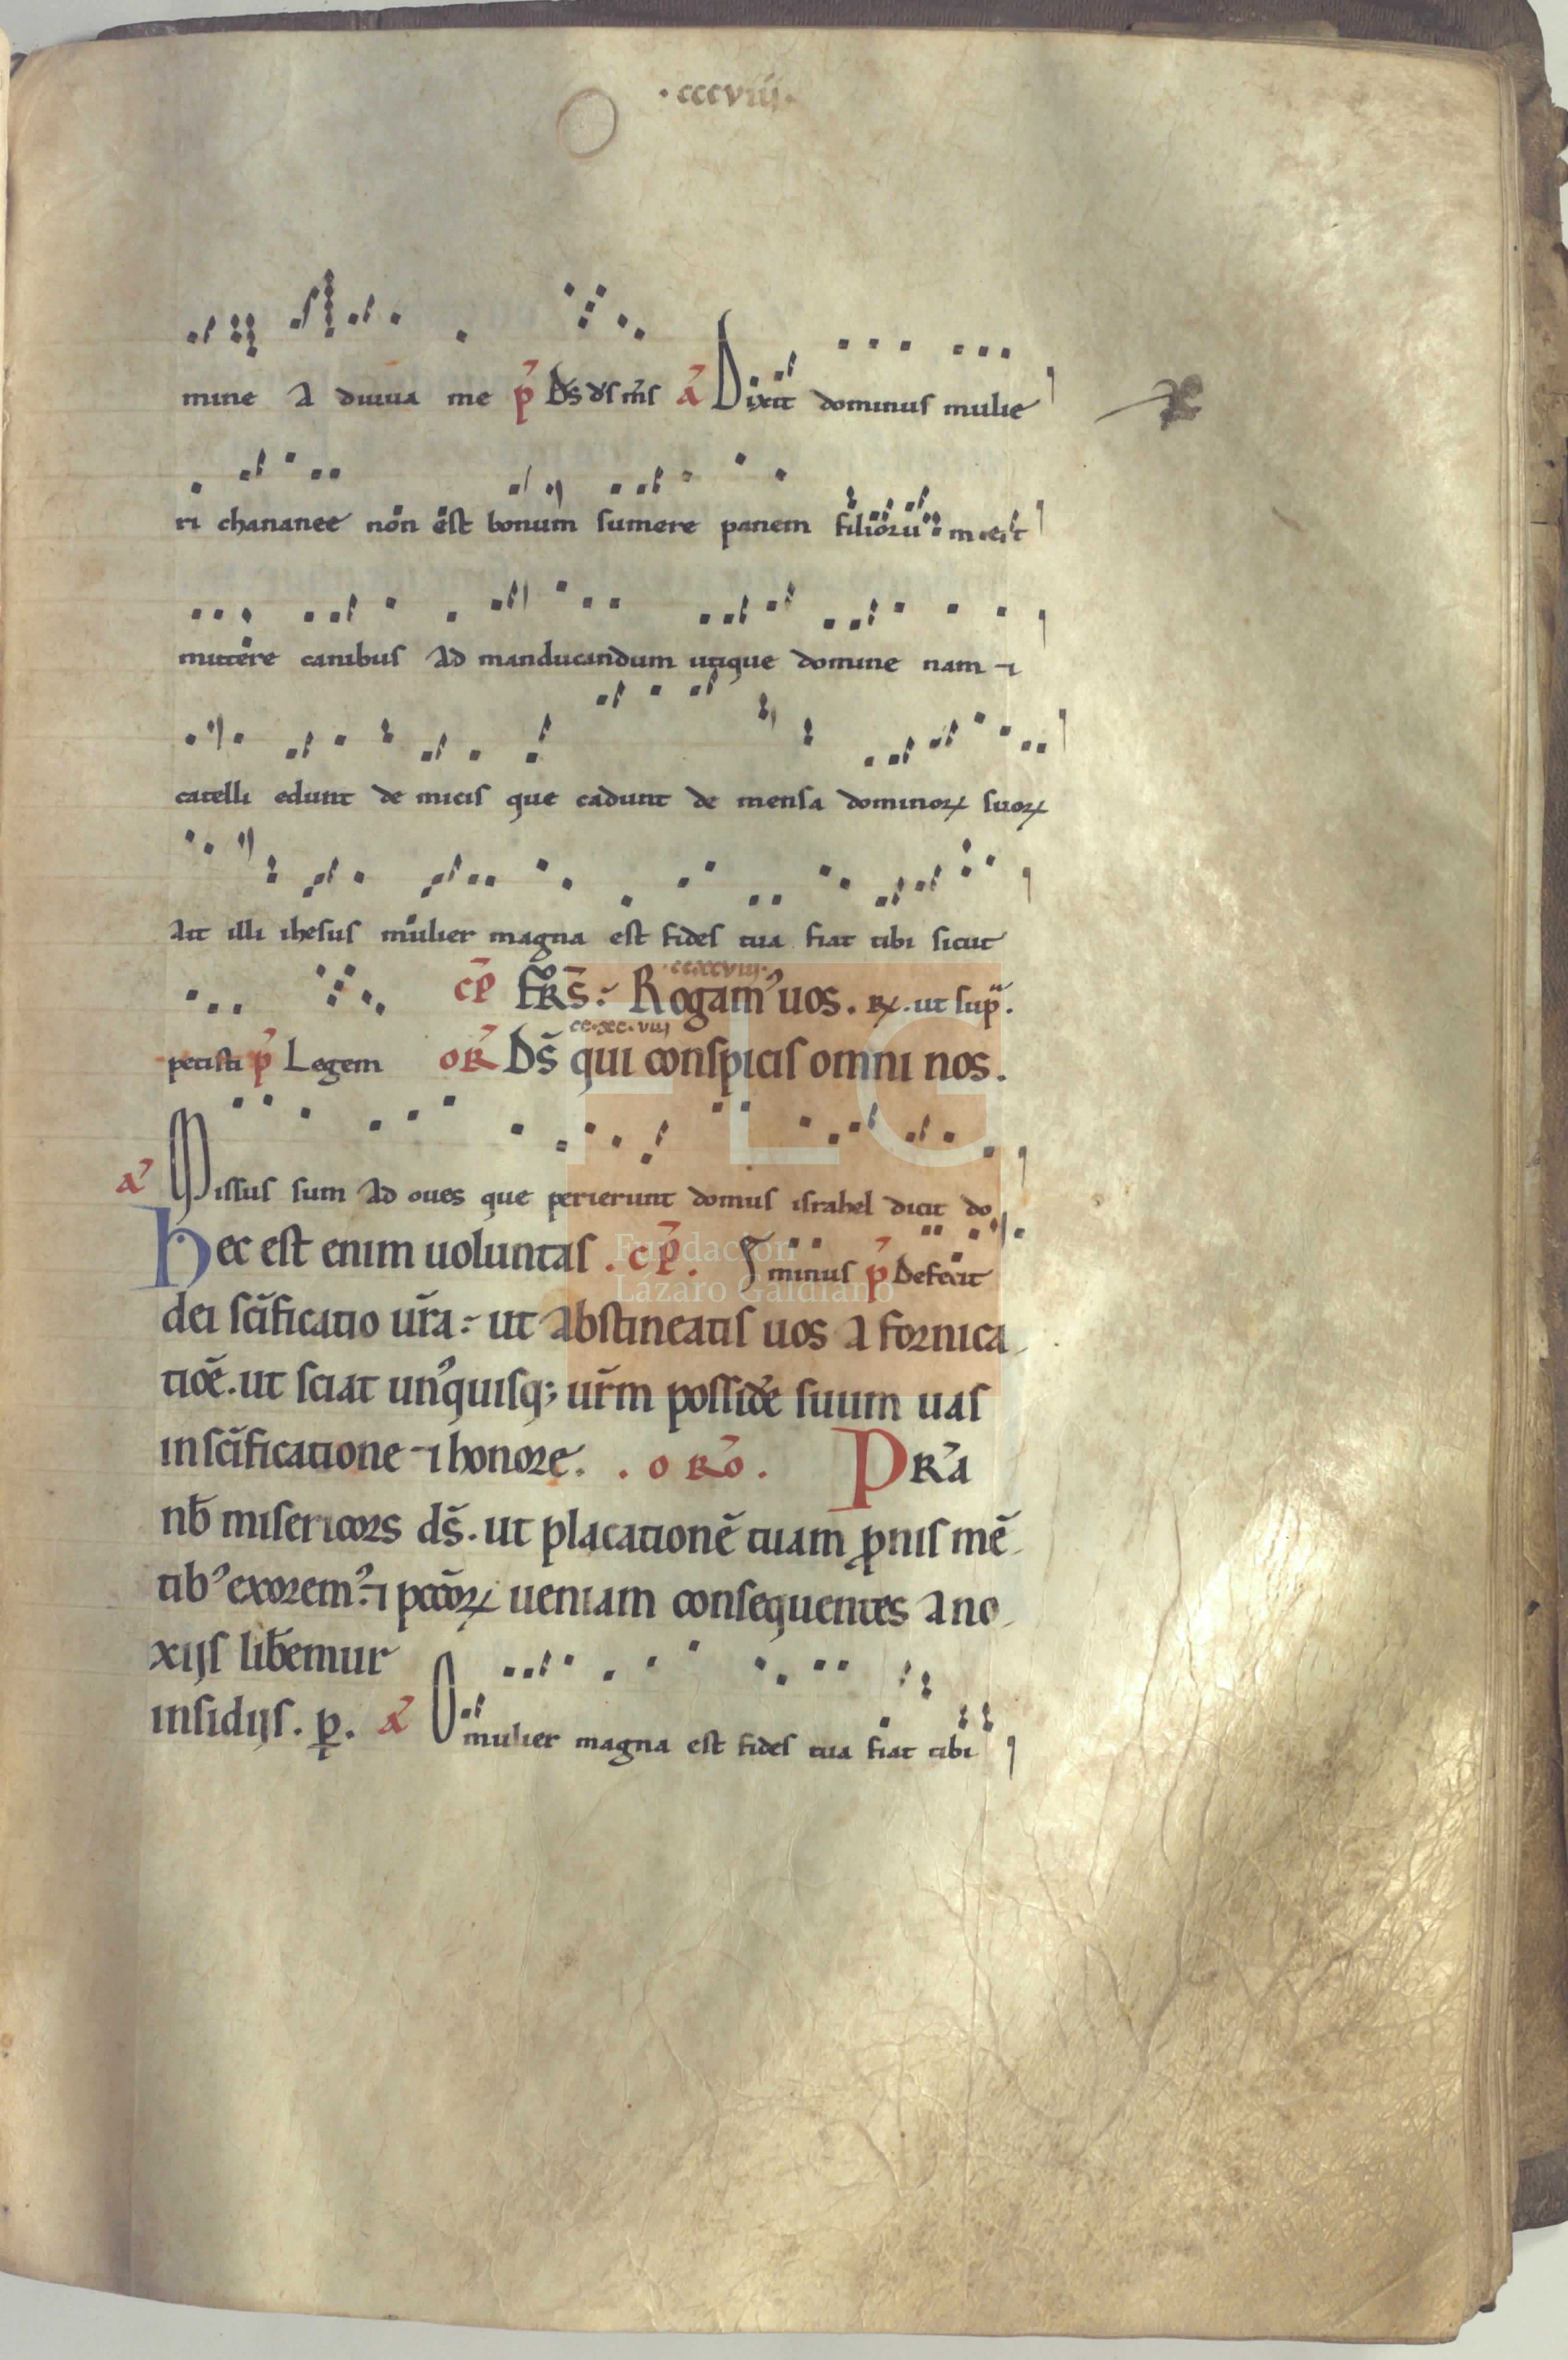 ·cccviij·
mine a diuua me p̄ Ds̄ ds̄ ms̄ a Dixit dominus mulie
ri chananee non est bonum sumere panem filiorū
mittere canibus ad manducandum utique domine nam ⁊
catelli edunt de micis que cadunt de mensa dominoꝝ suoꝝ
Ait illi ihesus mulier magna est fides tua fiat tibi sicut
·ccxcviij·
cp̄ FR̄S: Rogamꝰ uos. R̵. ut sup̄.
cc·xc·viij
petisti p̄ Legem oR̄ Ds̄ qui conspicis omni nos.
a Missus sum ad oues que perierunt domus israhel dicit do
Hec est enim uoluntas . cp̄. minus p̄ Defecit
dei scīficatio ur̄a: ut abstineatis uos a fornica
tiōe. ut sciat unꝰquisqꝫ ur̄m posside suum uas
in scīficatione ⁊ honore. . oRō. PR̄a
nb̄ misericors ds̄. ut placationē tuam ꝓnis mē
tibꝰ exoremꝰ: ⁊ pccōꝝ ueniam consequentes a no
xijs lib̄emur
insidijs. ꝑ. a O mulier magna est fides tua fiat tibi
Fundación
Lázaro Galdiano
FLG